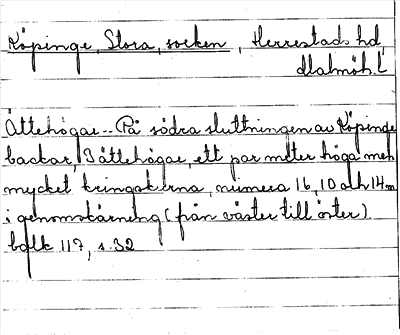 Köpinge, Stora, socken, Herrestads hd,
Malmöh. l
Ättehögar.. På södra sluttningen av Köpinge
backar, 3 ättehögar, ett par meter höga men
mycket kringskurna, numera 16, 10 och 14 m
i genomskärning (från väster till öster).
balk 117, s. 32